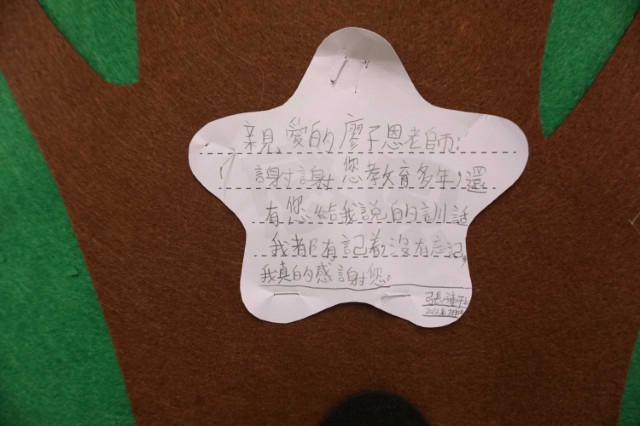 親愛的廖子恩老師:
謝謝您教育多年,還
有您給我說的訓話
我都有記着沒有忘記,
我真的感謝您。
張